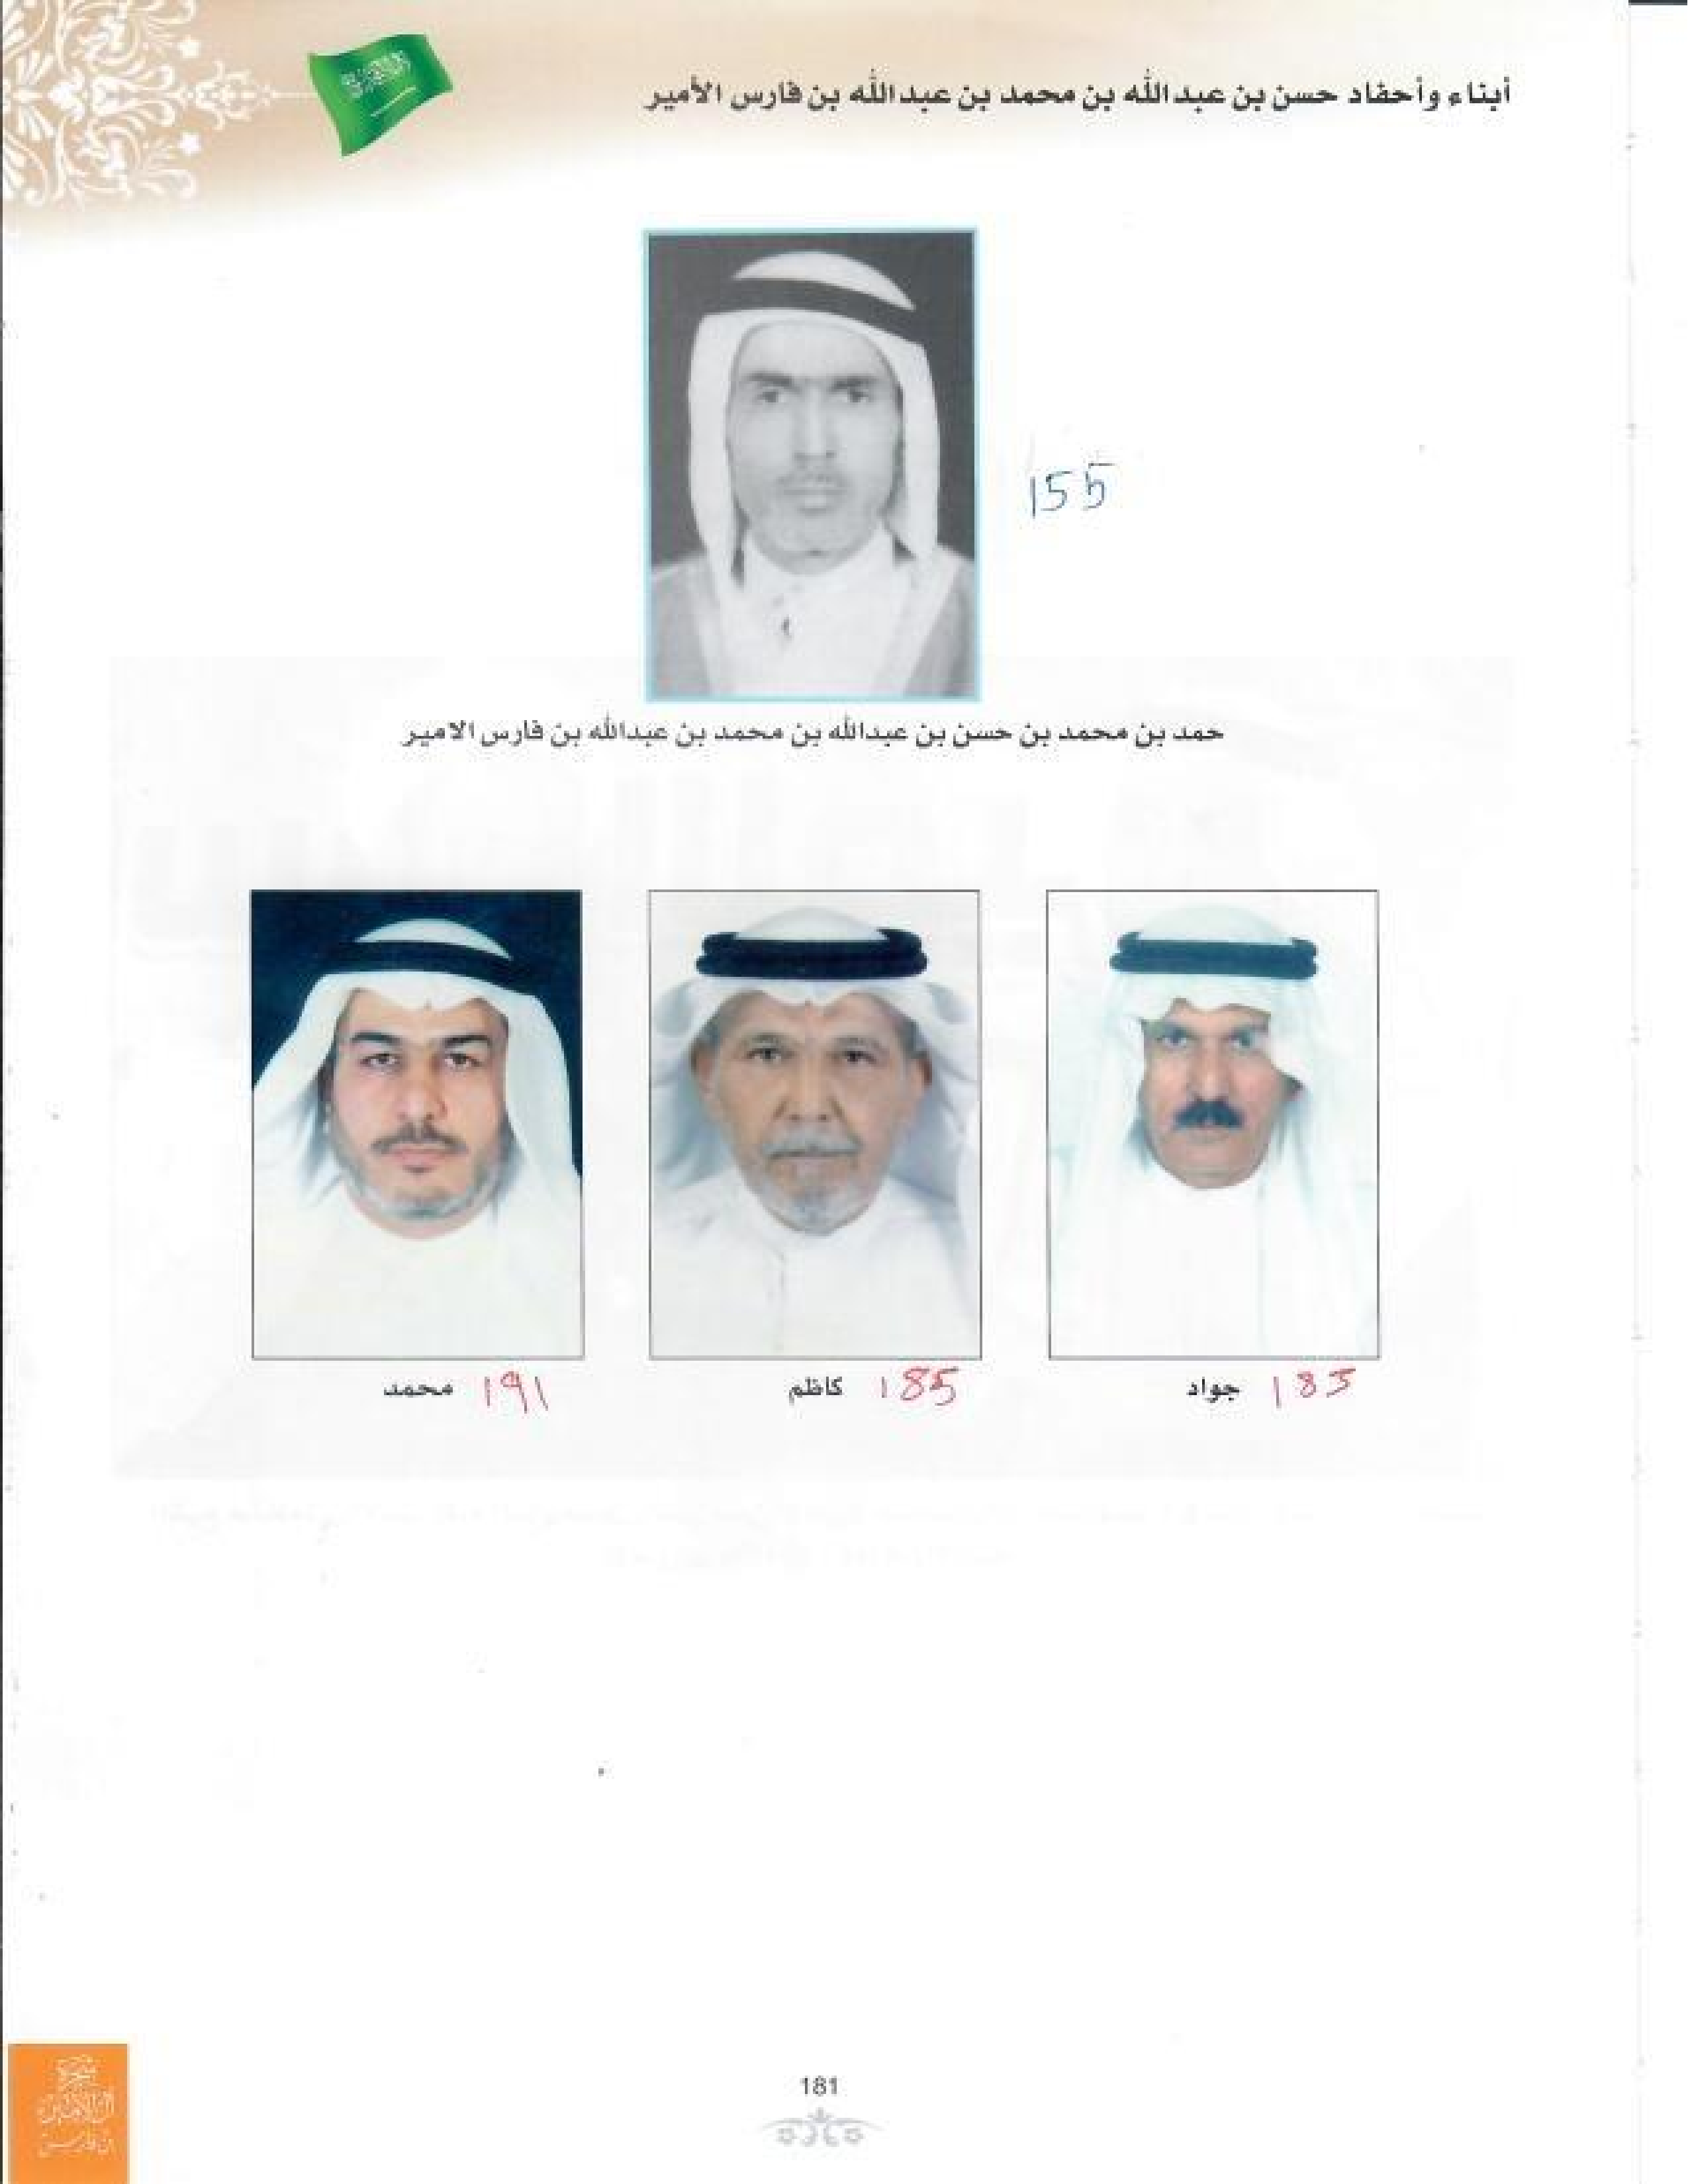 أبناء وأحفاد حسن بن عبدالله بن محمد بن عبدالله بن فارس الأمير
155
حمد بن محمد بن حسن بن عبدالله بن محمد بن عبدالله بن فارس الامير
جواد 183
كاظم 185
محمد 191
شجرة
بن فارس
181